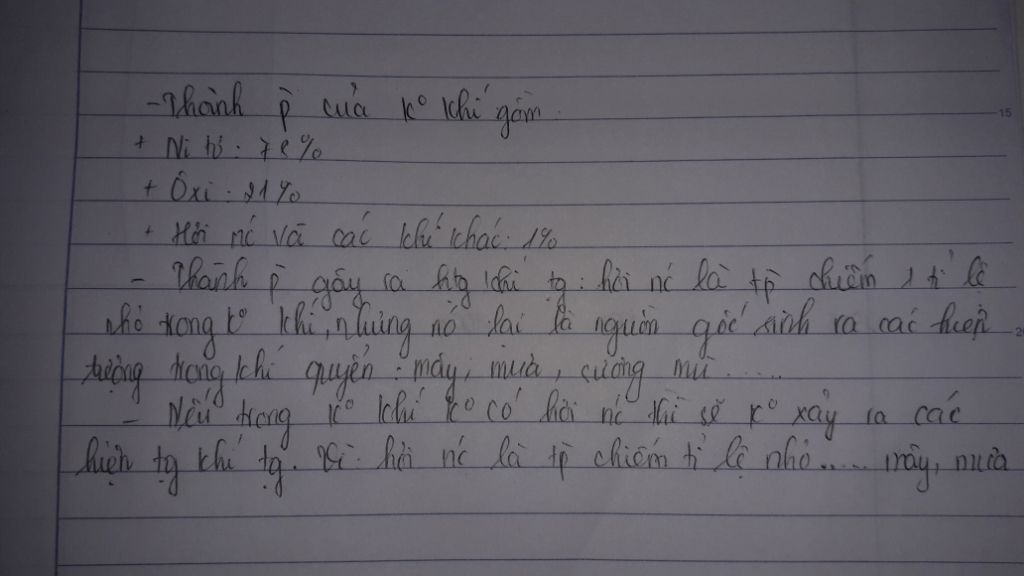 - Thành p̀ của k° khí gồm.
+ Ni tơ: 78%
+ Ôxi: 21%
+ Hơi nc và các khí khác: 1%
- Thành p̀ gây ra htg khí tg: hơi nc là tp̀ chiếm 1 tỉ lệ
nhỏ trong k° khí, nhưng nó lại là nguồn gốc sinh ra các hiện
tượng trong khí quyển: mây, mưa, sương mù.....
- Nếu trong k° khí k° có hơi nc thì sẽ k° xảy ra các
hiện tg khí tg. Vì: hơi nc là tp̀ chiếm tỉ lệ nhỏ..... mây, mưa
15